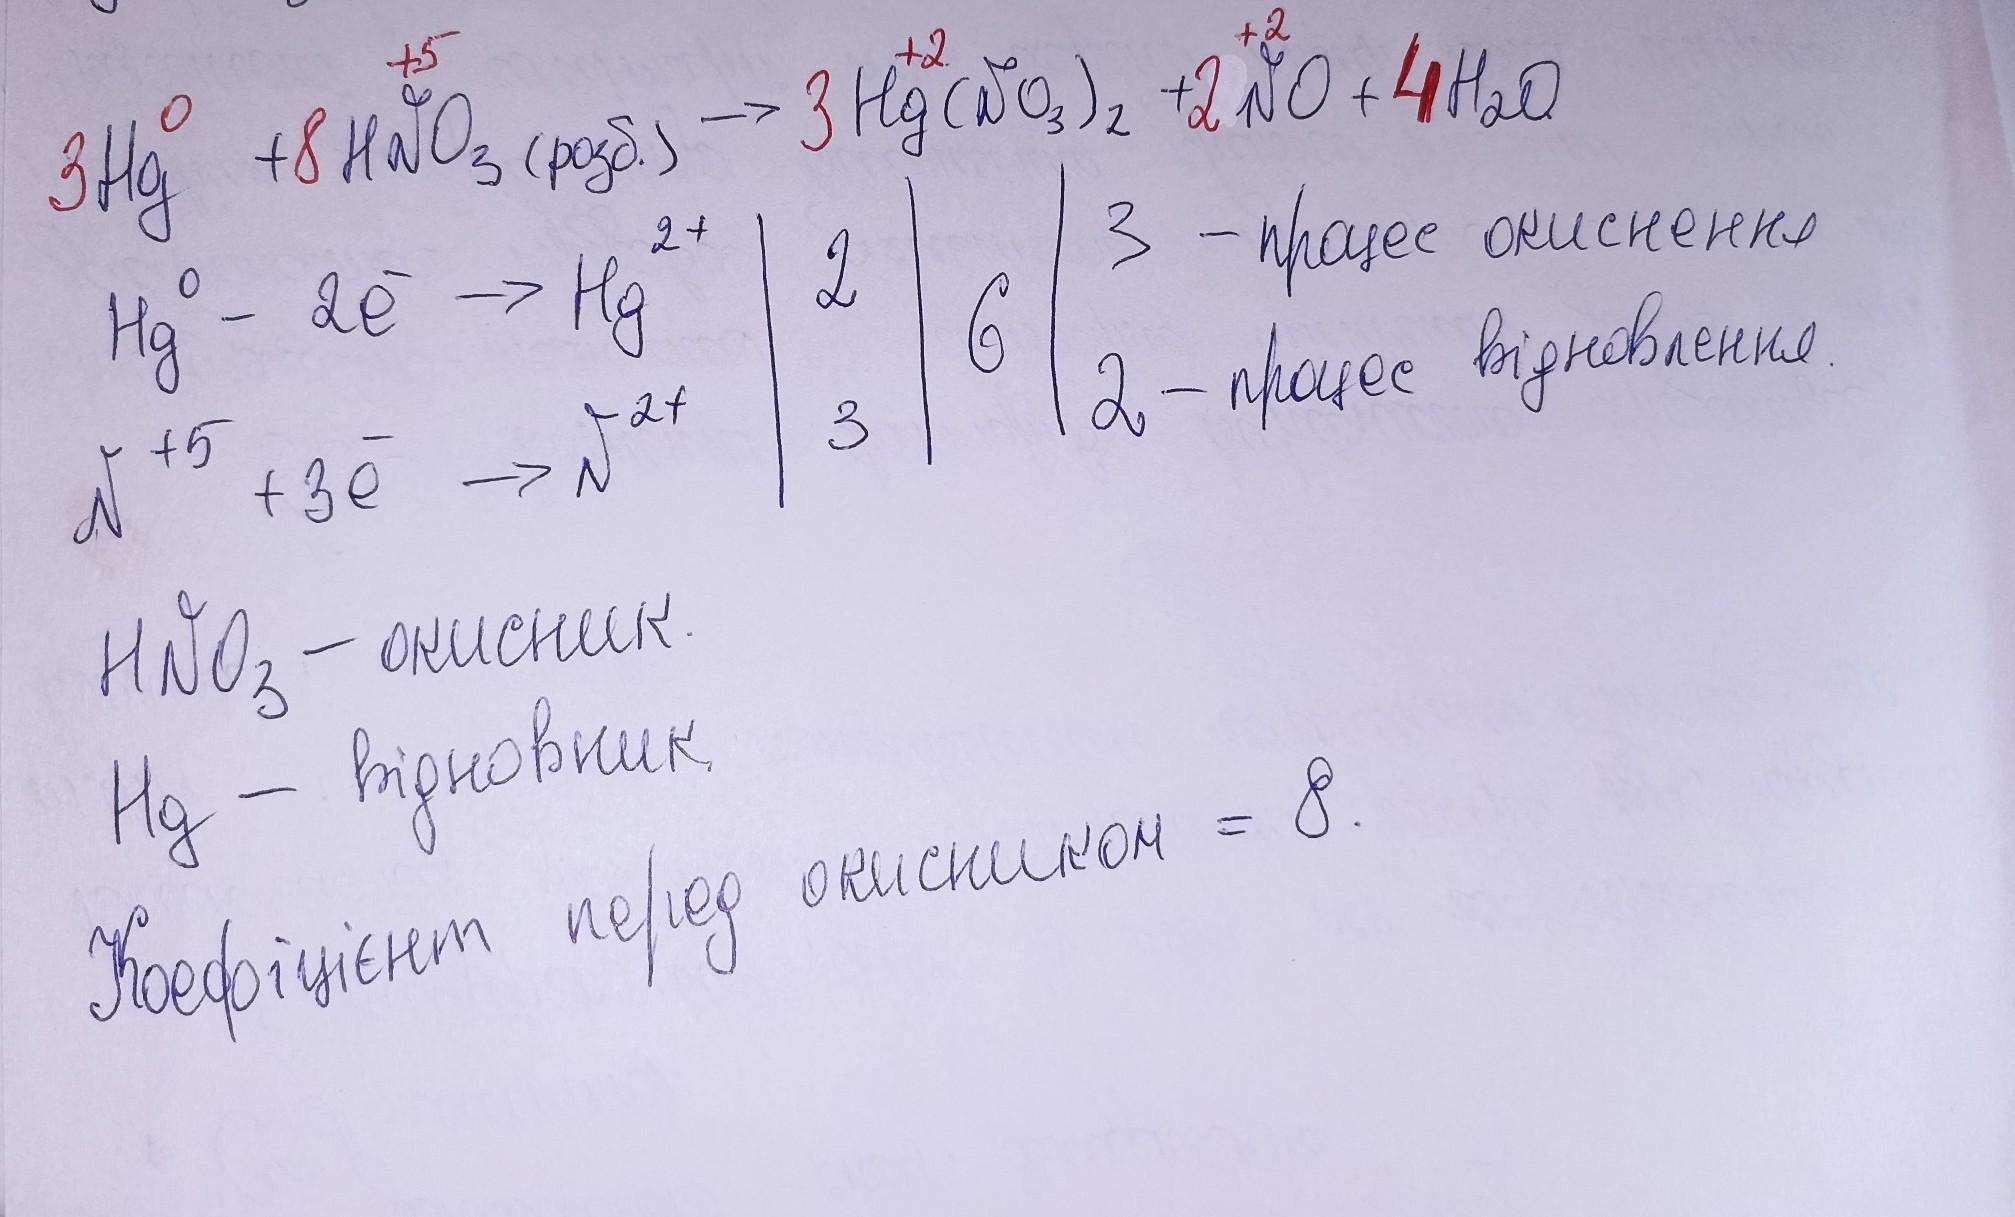 3Hg⁰ + 8HN⁺⁵O₃ (розб.) → 3Hg⁺²(NO₃)₂ + 2N⁺²O + 4H₂O
Hg⁰ - 2e⁻ → Hg²⁺ | 2 | 6 | 3 - процес окиснення
N⁺⁵ + 3e⁻ → N²⁺ | 3 | | 2 - процес відновлення.
HNO₃ - окисник.
Hg - відновник.
Коефіцієнт перед окисником = 8.